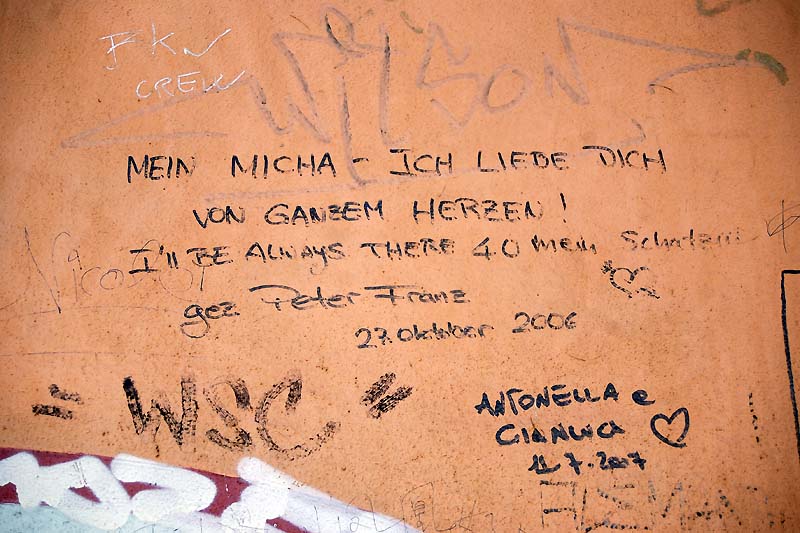 BKN
CREW
WILSON
MEIN MICHA - ICH LIEBE DICH
VON GANZEM HERZEN!
I'll BE ALWAYS THERE 4.U mein Schatzni
gez Peter Franz
27. Oktober 2006
" WSC "
ANTONELLA e
GIANLUCA
11.7.2007